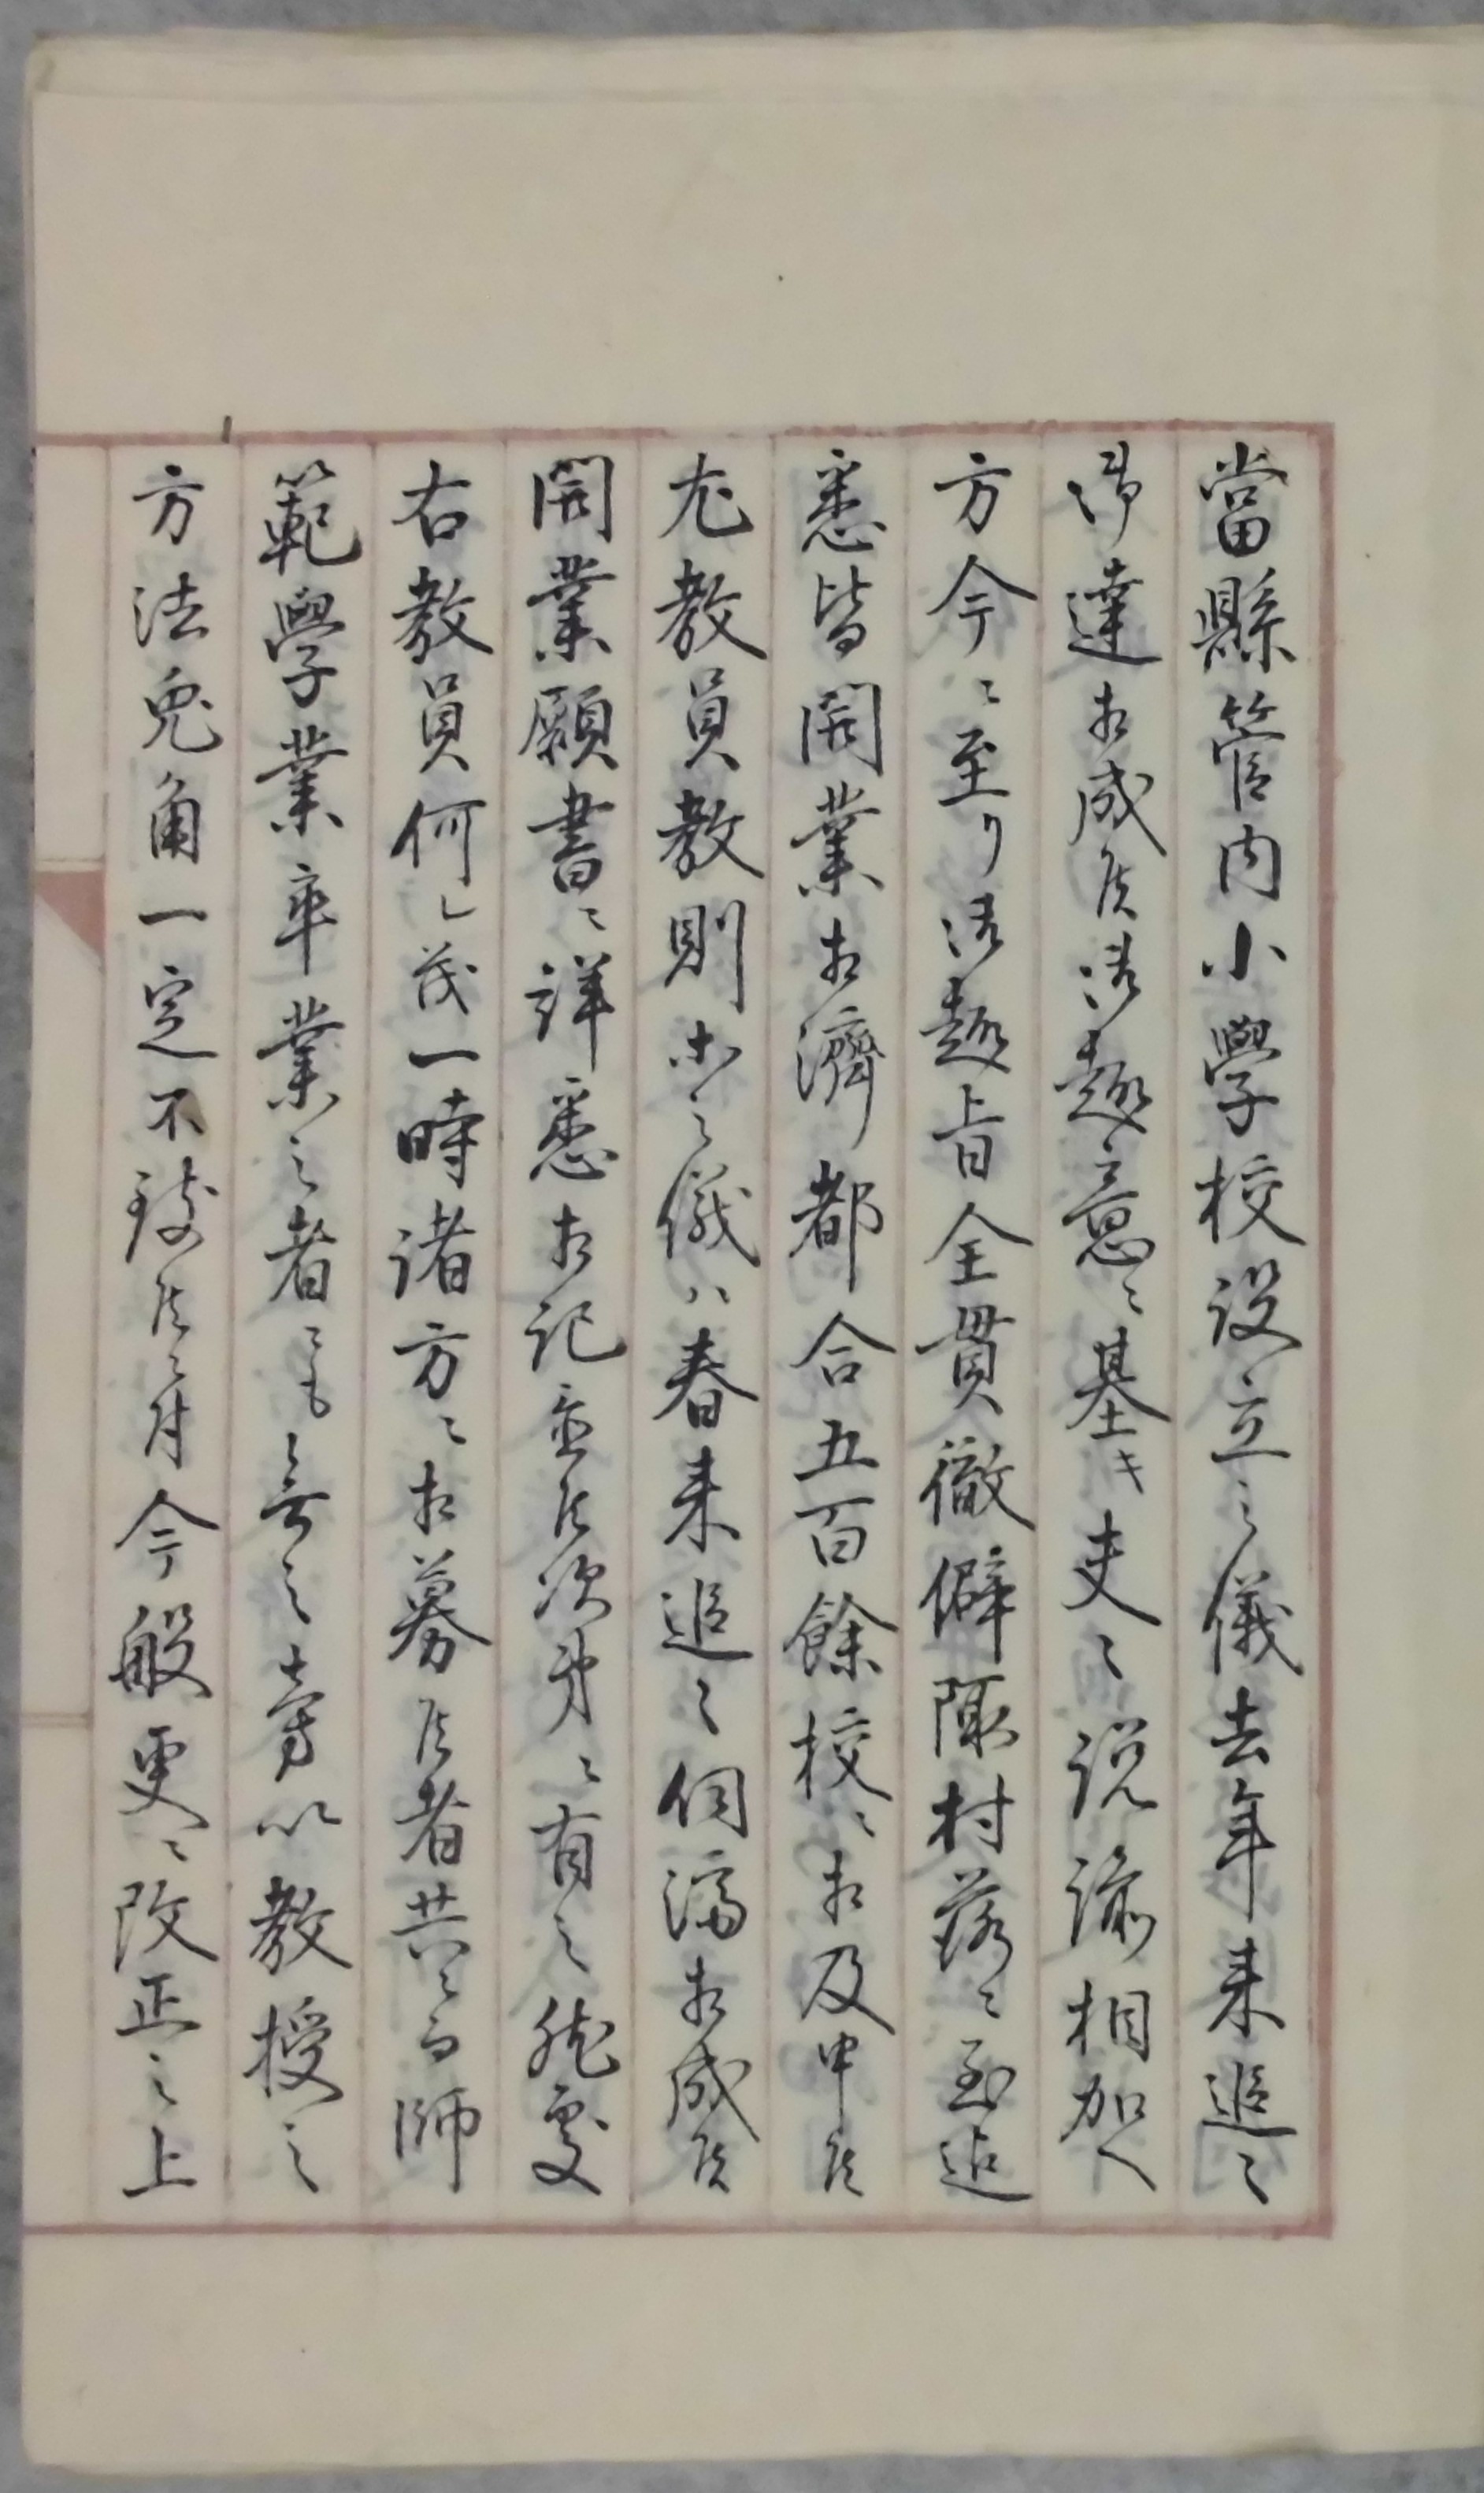 當縣管内小學校設立之儀去年来追々
御達相成候御趣意ニ基キ夫々説諭相加へ
方今ニ至リ御趣旨全貫徹僻陬村落ニ至迠
悉皆開業相濟都合五百餘校ニ相及申候
尤教員教則等之儀ハ春来追々伺済相成候
開業願書ニ詳悉相記置候次第ニ有之然處
右教員何レ茂一時諸方ニ相募候者共ニ而師
範學業卒業之者ニも無之旁以教授之
方法兎角一定不致候ニ付今般更ニ改正之上